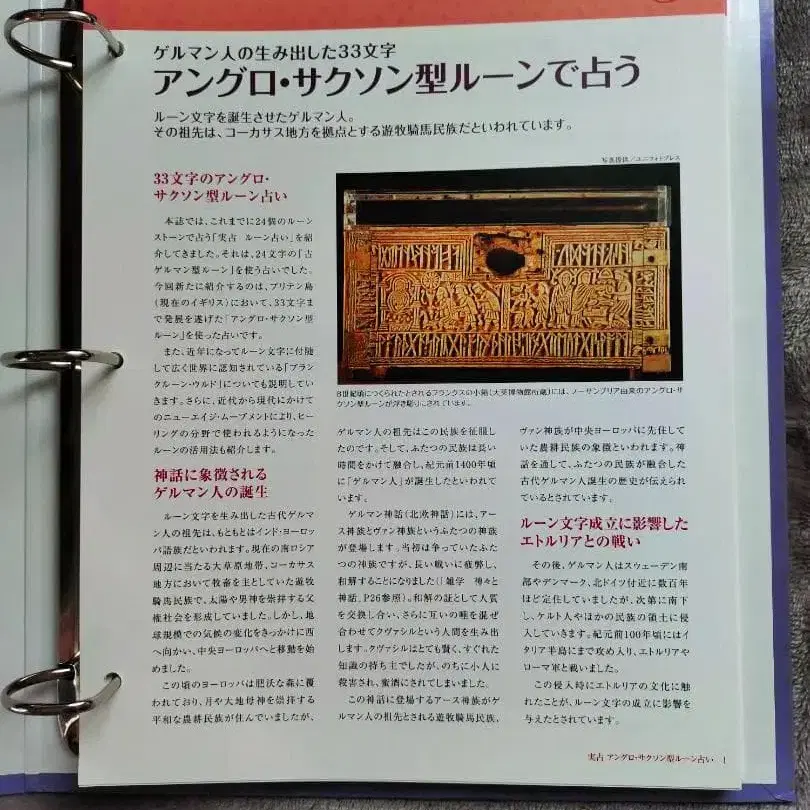 ゲルマン人の生み出した33文字
アングロ・サクソン型ルーンで占う
ルーン文字を誕生させたゲルマン人。
その祖先は、コーカサス地方を拠点とする遊牧騎馬民族だといわれています。
写真提供／ユニフォトプレス
33文字のアングロ・
サクソン型ルーン占い
本誌では、これまでに24個のルーン
ストーンで占う「実占　ルーン占い」を紹
介してきました。それは、24文字の「古
ゲルマン型ルーン」を使う占いでした。
今回新たに紹介するのは、ブリテン島
（現在のイギリス）において、33文字ま
で発展を遂げた「アングロ・サクソン型
ルーン」を使った占いです。
また、近年になってルーン文字に付随
して広く世界に認知されている「ブラン
クルーン・ウルド」についても説明してい
きます。さらに、近代から現代にかけて
のニューエイジ・ムーブメントにより、ヒー
リングの分野で使われるようになった
ルーンの活用法も紹介します。
神話に象徴される
ゲルマン人の誕生
ルーン文字を生み出した古代ゲルマ
ン人の祖先は、もともとはインド・ヨーロッ
パ語族だといわれます。現在の南ロシア
周辺に当たる大草原地帯、コーカサス
地方において牧畜を主としていた遊牧
騎馬民族で、太陽や男神を崇拝する父
権社会を形成していました。しかし、地
球規模での気候の変化をきっかけに西
へ向かい、中央ヨーロッパへと移動を始
めました。
この頃のヨーロッパは肥沃な森に覆
われており、月や大地母神を崇拝する
平和な農耕民族が住んでいましたが、
8世紀頃につくられたとされるフランクスの小箱（大英博物館所蔵）には、ノーサンブリア由来のアングロ・サ
クソン型ルーンが浮き彫りにされています。
ゲルマン人の祖先はこの民族を征服し
たのです。そして、ふたつの民族は長い
時間をかけて融合し、紀元前1400年頃
に「ゲルマン人」が誕生したといわれて
います。
ゲルマン神話（北欧神話）には、アー
ス神族とヴァン神族というふたつの神族
が登場します。当初は争っていたふた
つの神族ですが、長い戦いに疲弊し、
和解することになりました（「雑学　神々と
神話」P26参照）。和解の証として人質
を交換し合い、さらに互いの唾を混ぜ
合わせてクヴァシルという人間を生み出
します。クヴァシルはとても賢く、すぐれた
知識の持ち主でしたが、のちに小人に
殺害され、蜜酒にされてしまいました。
この神話に登場するアース神族がゲ
ルマン人の祖先とされる遊牧騎馬民族、
ヴァン神族が中央ヨーロッパに先住して
いた農耕民族の象徴といわれます。神
話を通して、ふたつの民族が融合した
古代ゲルマン人誕生の歴史が伝えられ
ているとされています。
ルーン文字成立に影響した
エトルリアとの戦い
その後、ゲルマン人はスウェーデン南
部やデンマーク、北ドイツ付近に数百年
ほど定住していましたが、次第に南下
し、ケルト人やほかの民族の領土に侵
入していきます。紀元前100年頃にはイ
タリア半島にまで攻め入り、エトルリアや
ローマ軍と戦いました。
この侵入時にエトルリアの文化に触
れたことが、ルーン文字の成立に影響を
与えたとされています。
実占 アングロ・サクソン型ルーン占い　1